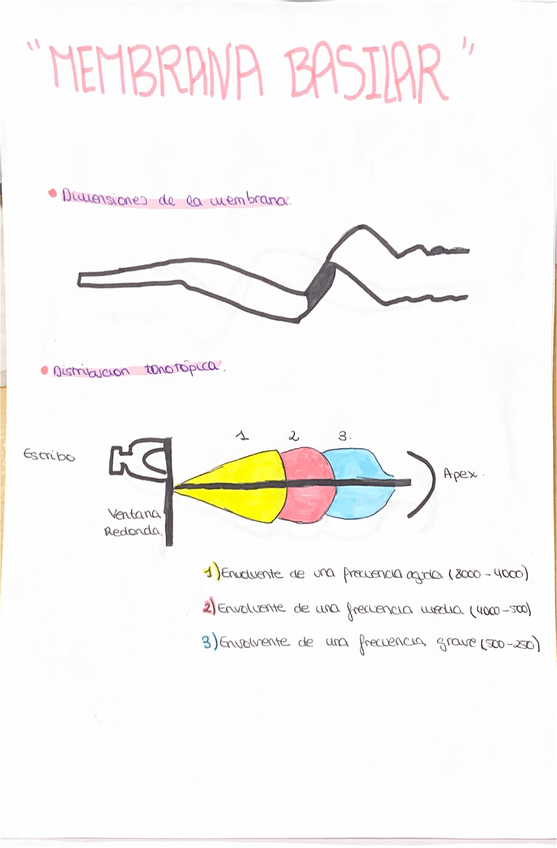 "MEMBRANA BASILAR"
• Dimensiones de la membrana.
• Distribucion tonotópica.
1 2 3.
Escribo
Apex.
Ventana
Redonda
1) Envolvente de una frecuencia aguda (8000-4000)
2) Envolvente de una frecuencia media (4000-500)
3) Envolvente de una frecuencia grave (500-250)